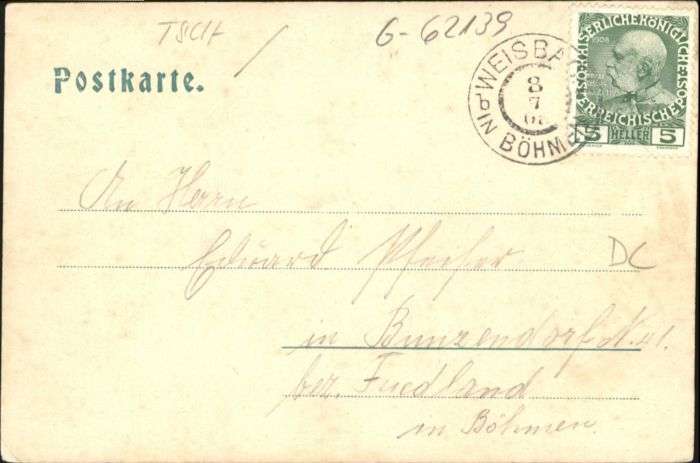 TSCH
G-62139
Postkarte.
WEISBA
8
7
IN BÖHME
KAISERLICHE KÖNIGLICHE
ÖSTERREICHISCHE POST
1908
5 HELLER 5
An Herrn
Eduard
DC
in Bunzendorf N. 41.
bez. Friedland
in Böhmen.